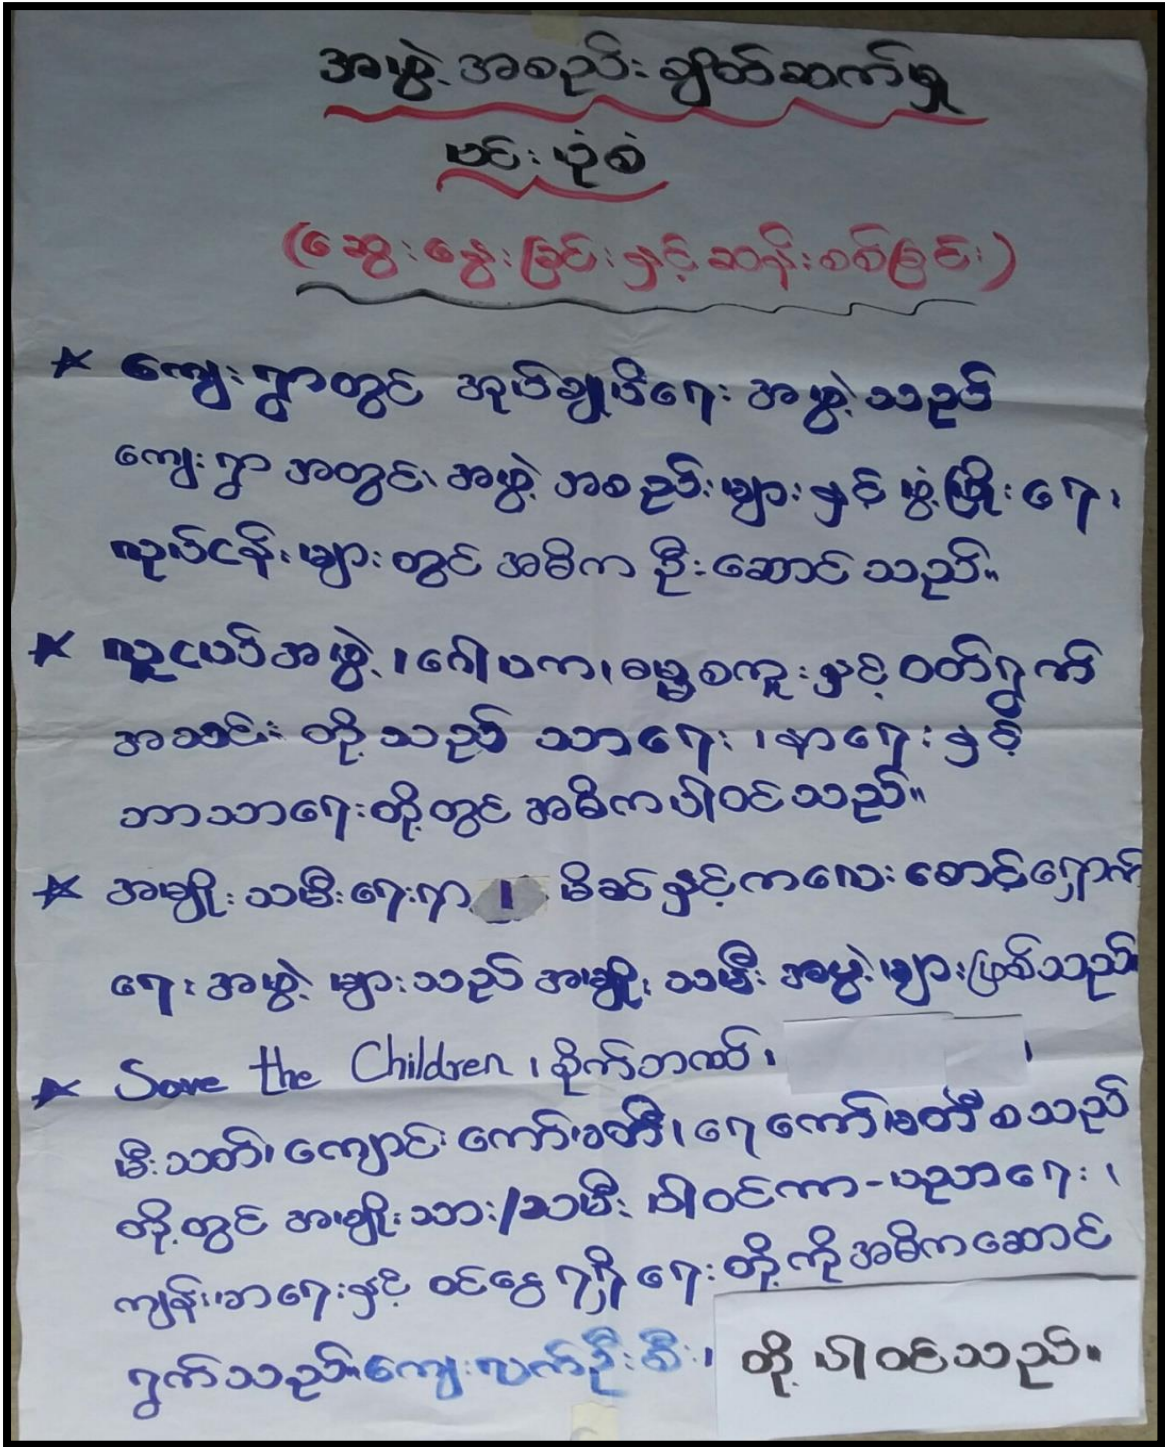 အဖွဲ့အစည်းချိတ်ဆက်မှု
ပင်းပုံစံ
(ဆွေးနွေးခြင်းနှင့်ဆန်းစစ်ခြင်း)
* ကျေးရွာတွင် အုပ်ချုပ်ရေး အဖွဲ့သည်
ကျေးရွာအတွင်း၊ အဖွဲ့အစည်းများနှင့် ဖွံ့ဖြိုးရေး၊
လုပ်ငန်းများတွင် အဓိကဦးဆောင်သည်။
* လူငယ်အဖွဲ့၊ ဂေါပက၊ ဓမ္မစကူးနှင့် ဝတ်ရွတ်
အသင်း တို့သည် သာရေး၊ နာရေးနှင့်
ဘာသာရေးတို့တွင် အဓိကပါဝင်သည်။
* အမျိုးသမီးရေးရာ၊ မိခင်နှင့်ကလေး စောင့်ရှောက်
ရေးအဖွဲ့များသည် အမျိုးသမီးအဖွဲ့များဖြစ်သည်။
* Save the Children၊ စိုက်ဘဏ်၊ ၊
မီးသတ်၊ ကျောင်းကော်မတီ၊ ရေကော်မတီ စသည်
တို့တွင် အမျိုးသား/သမီး ပါဝင်ကာ-ပညာရေး၊
ကျန်းမာရေးနှင့် ဝင်ငွေရရှိရေးတို့ကို အဓိကဆောင်
ရွက်သည်။ ကျေးလက်ဦးစီး၊ တို့ ပါဝင်သည်။